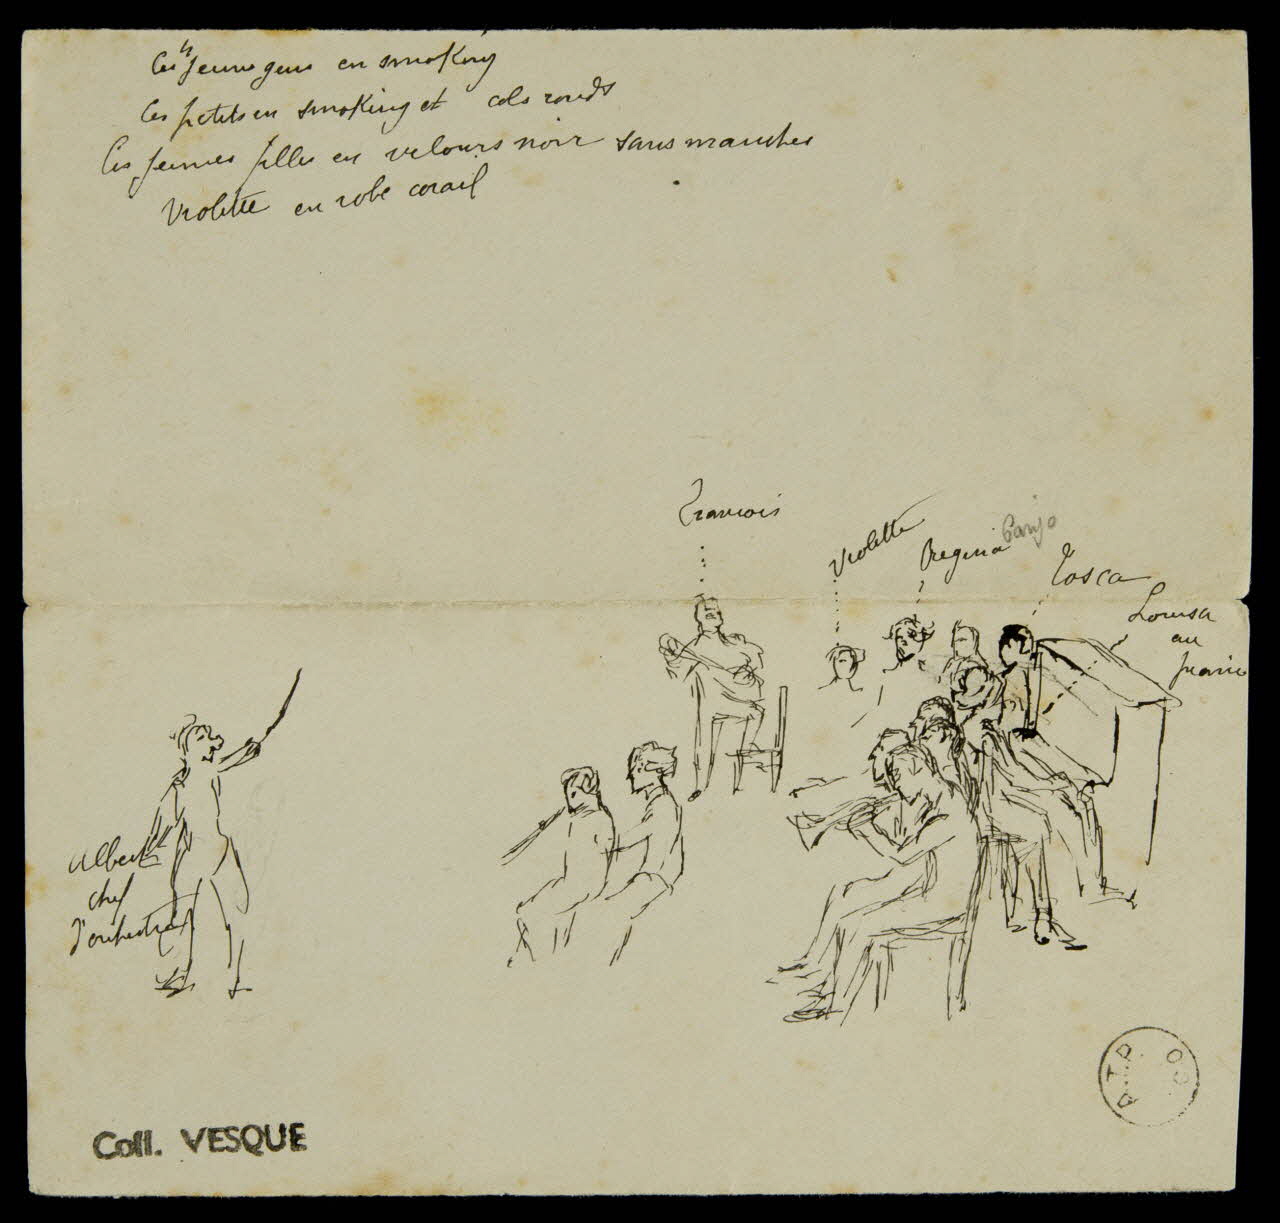 les jeunes gens en smoking
les petits en smoking et cols ronds
les jeunes filles en velours noir sans manches
Violette en robe corail
Francois
Violette
Regina
banjo
Tosca
Louisa
au
piano
Albert
chef
d'orchestre
A.T.P.
Coll. VESQUE